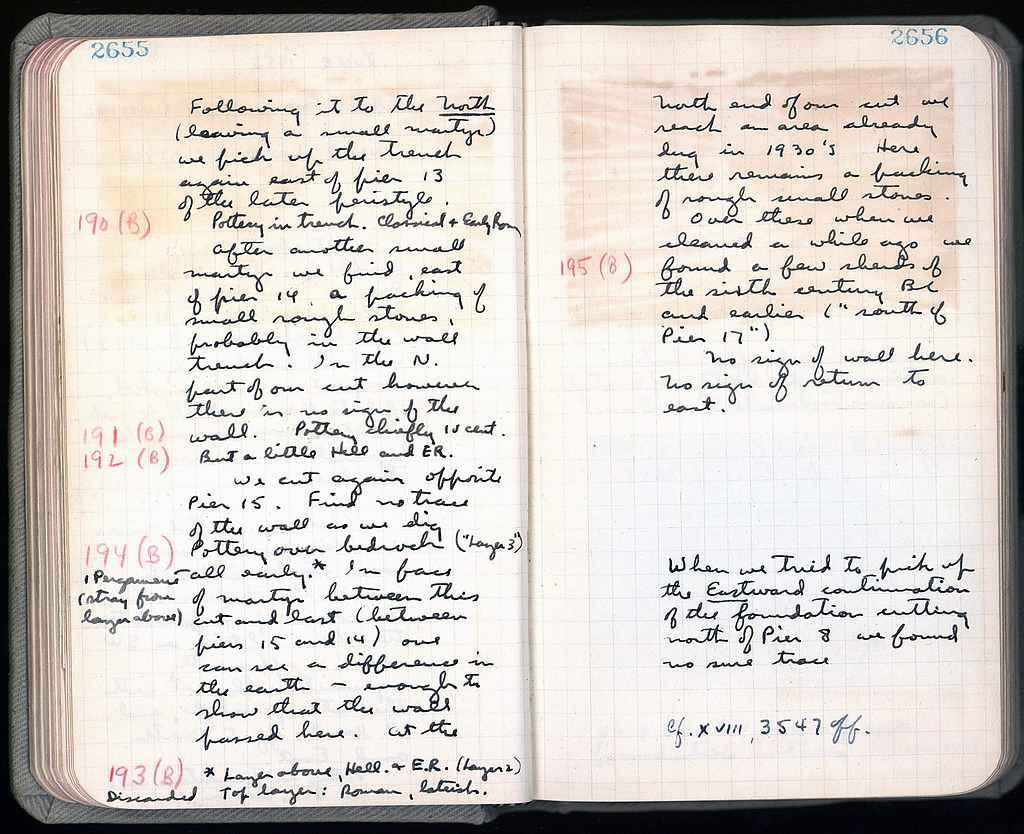 2655
Following it to the North
(leaving a small martyr)
we pick up the trench
again east of pier 13
of the later peristyle.
190 (B) Pottery in trench. Classical + Early Rom
After another small
martyr we find, east
of pier 14, a packing of
small rough stones,
probably in the wall
trench. In the N.
part of our cut however
there is no sign of the
191 (B) wall. Pottery chiefly cent.
192 (B) But a little Hell and ER.
We cut again opposite
Pier 15. Find no trace
of the wall as we dig
194 (B) Pottery over bedrock ("Layer 3")
1 Pergamene all early.* In face
(stray from of martyr between this
layer above) cut and last (between
piers 15 and 14) one
can see a difference in
the earth – enough to
show that the wall
passed here. At the
193 (B) * Layer above, Hell. + E.R. (Layer 2)
Discarded Top layer: Roman, lateish.
2656
North end of our cut we
reach an area already
dug in 1930's Here
there remains a packing
of rough small stones.
Over these when we
cleaned a while ago we
195 (B) found a few sherds of
the sixth century BC
and earlier ("south of
Pier 17")
No sign of wall here.
No sign of return to
east.
When we tried to pick up
the Eastward continuation
of the foundation cutting
north of Pier 8 we found
no sure trace
Cf. XVIII, 3547 ff.